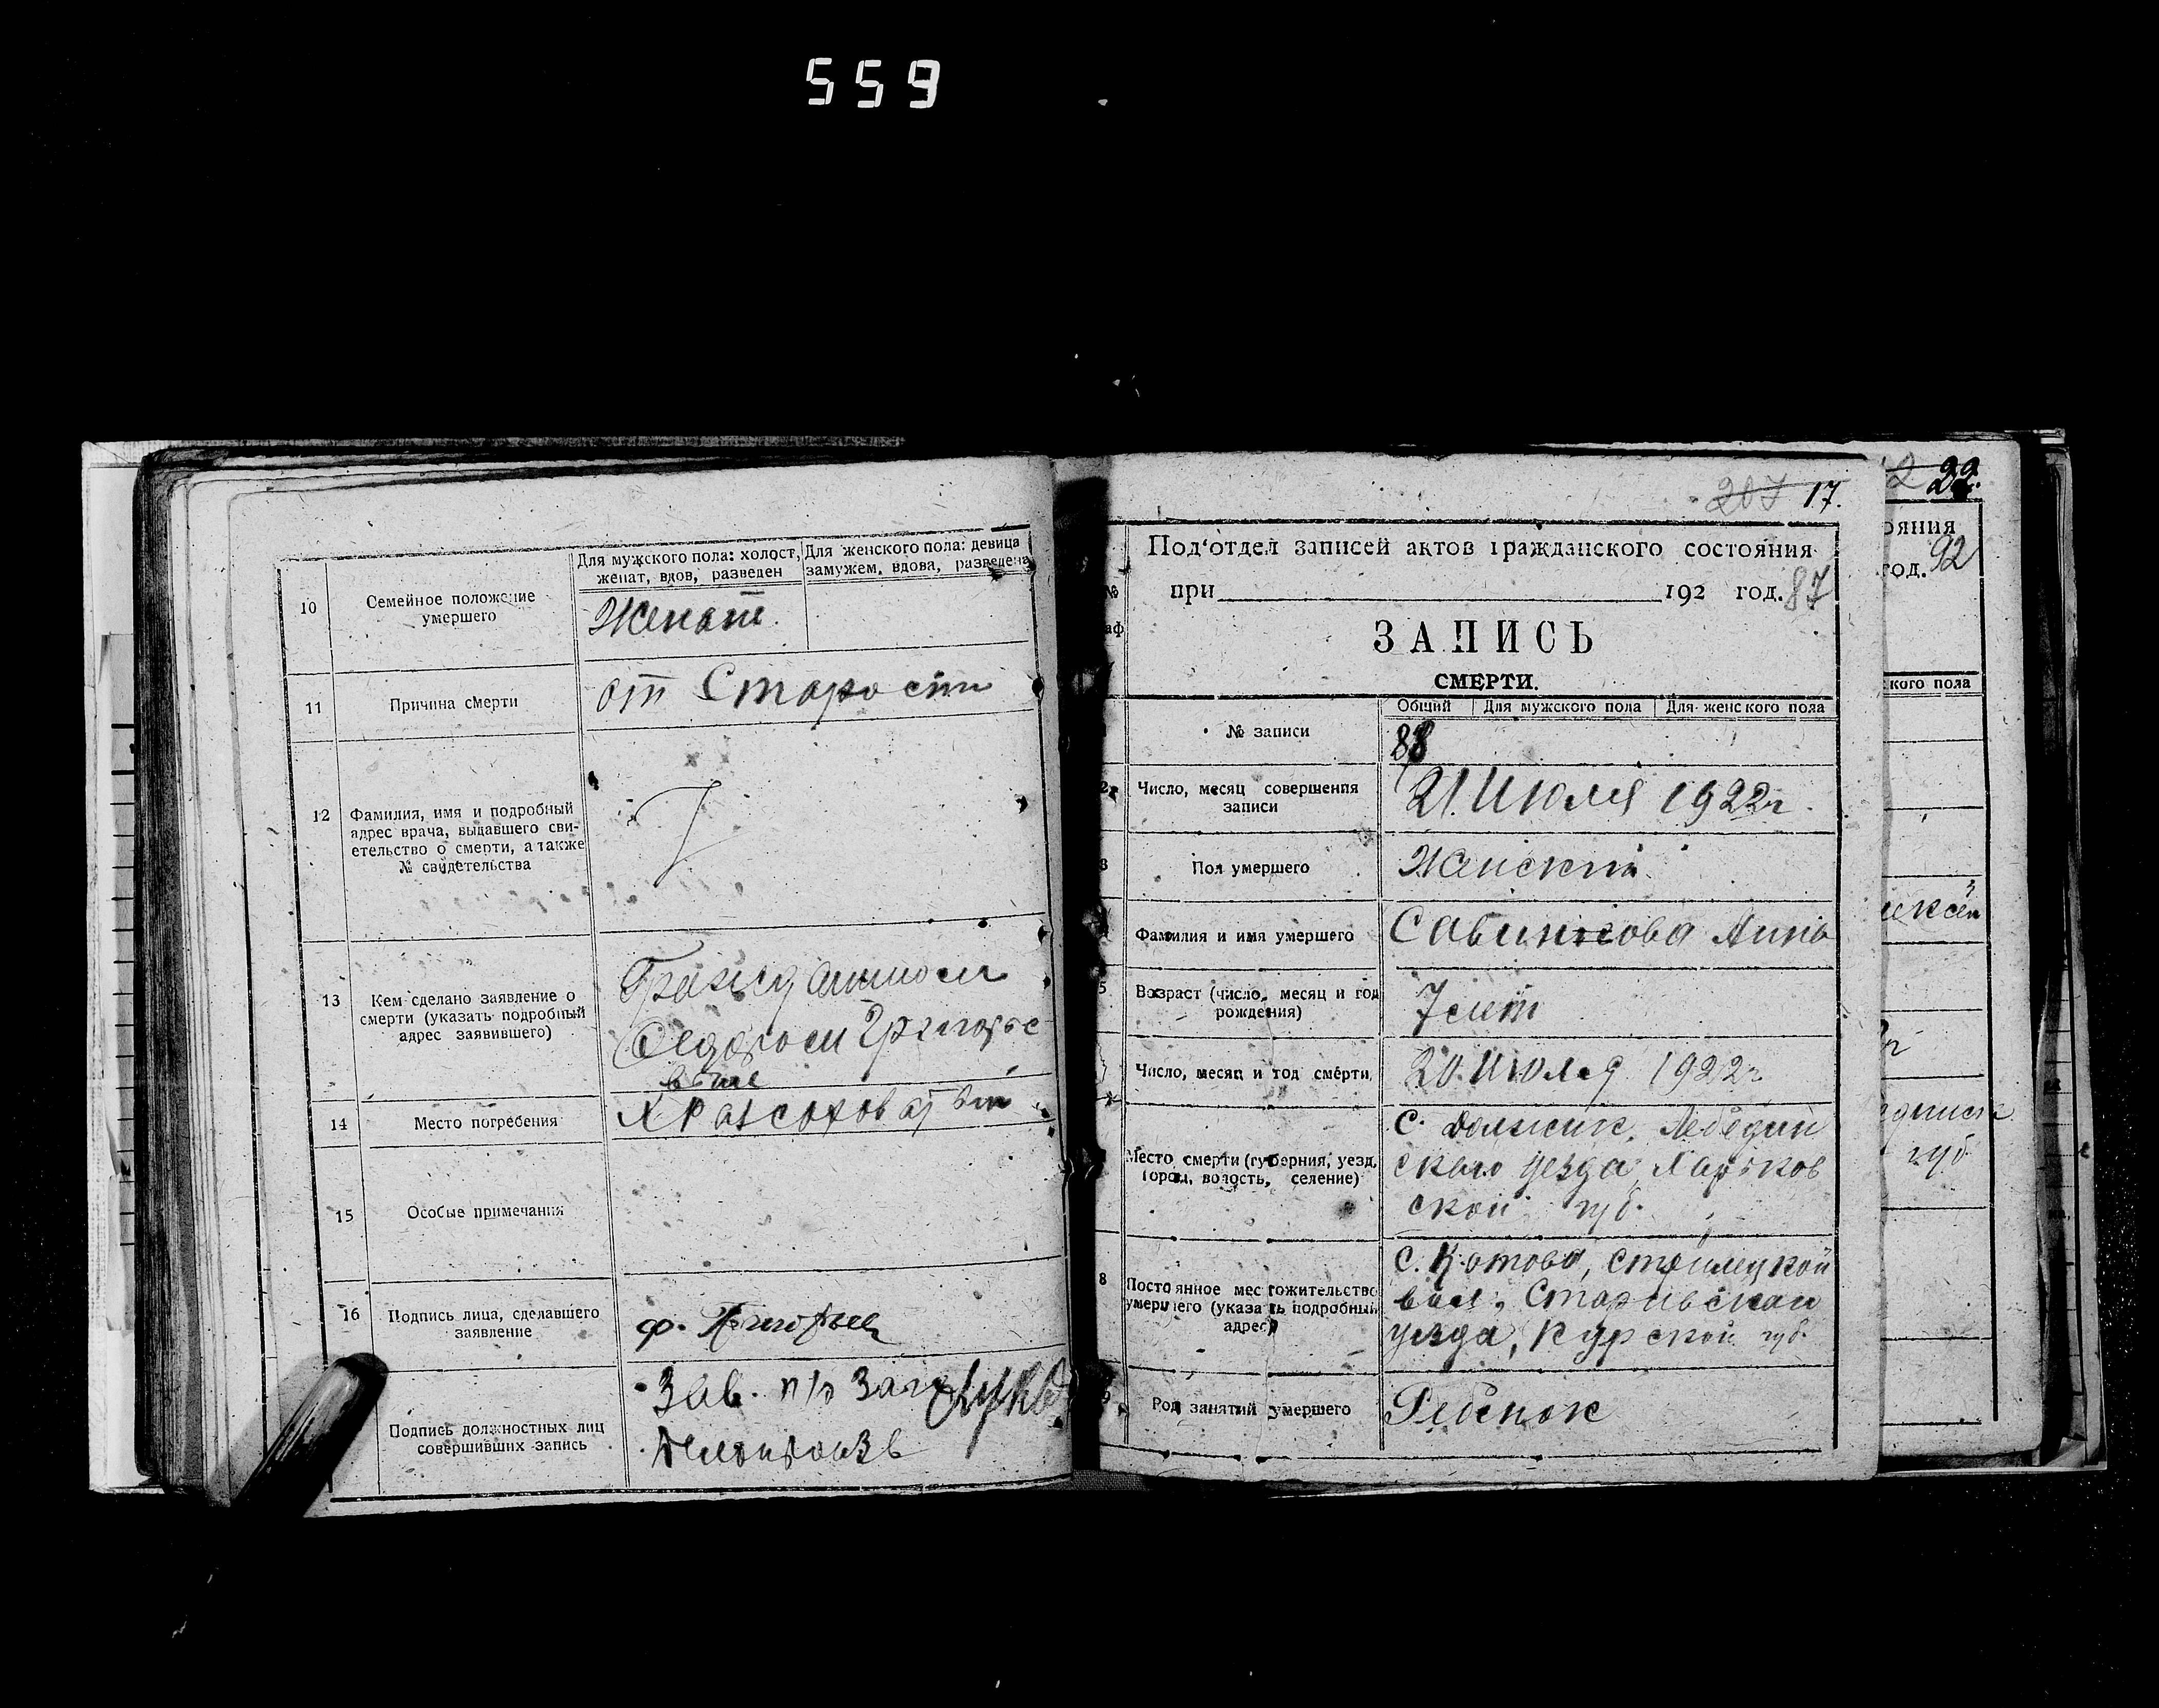 559
10
Семейное положение
умершего
Для мужского пола: холост,
женат, вдов, разведен
Для женского пола: девица
замужем, вдова, разведена
Женат
11
Причина смерти
от Старости
12
Фамилия, имя и подробный
адрес врача, выдавшего сви-
етельство о смерти, а также
№ свидетельства
13
Кем сделано заявление о
смерти (указать подробный
адрес заявившего)
Федором Григорье
14
Место погребения
15
Особые примечания
16
Подпись лица, сделавшего
заявление
ф.
Подпись должностных лиц
совершивших запись
Зав. п/о
207 17.
Под'отдел записей актов гражданского состояния
при 192 год. 87
ЗАПИСЬ
СМЕРТИ.
Общий
Для мужского пола
Для женского пола
№ записи
88
Число, месяц совершения
записи
21. Июля 1922 г.
3
Пол умершего
Женский
Фамилия и имя умершего
Анна
5
Возраст (число, месяц и год
рождения)
7 лет
Число, месяц и год смерти,
20. Июля 1922 г.
Место смерти (губерния, уезд,
город, волость, селение)
с. Должик, Лебедин
ского уезда, Харьков
ской губ.
8
Постоянное местожительство
умершего (указать подробный
адрес)
с. Котово, Стрелецкой
вол.,
уезда, Курской губ.
Род занятий умершего
Ребенок
22.
ояния
год. 92
кого пола
губ